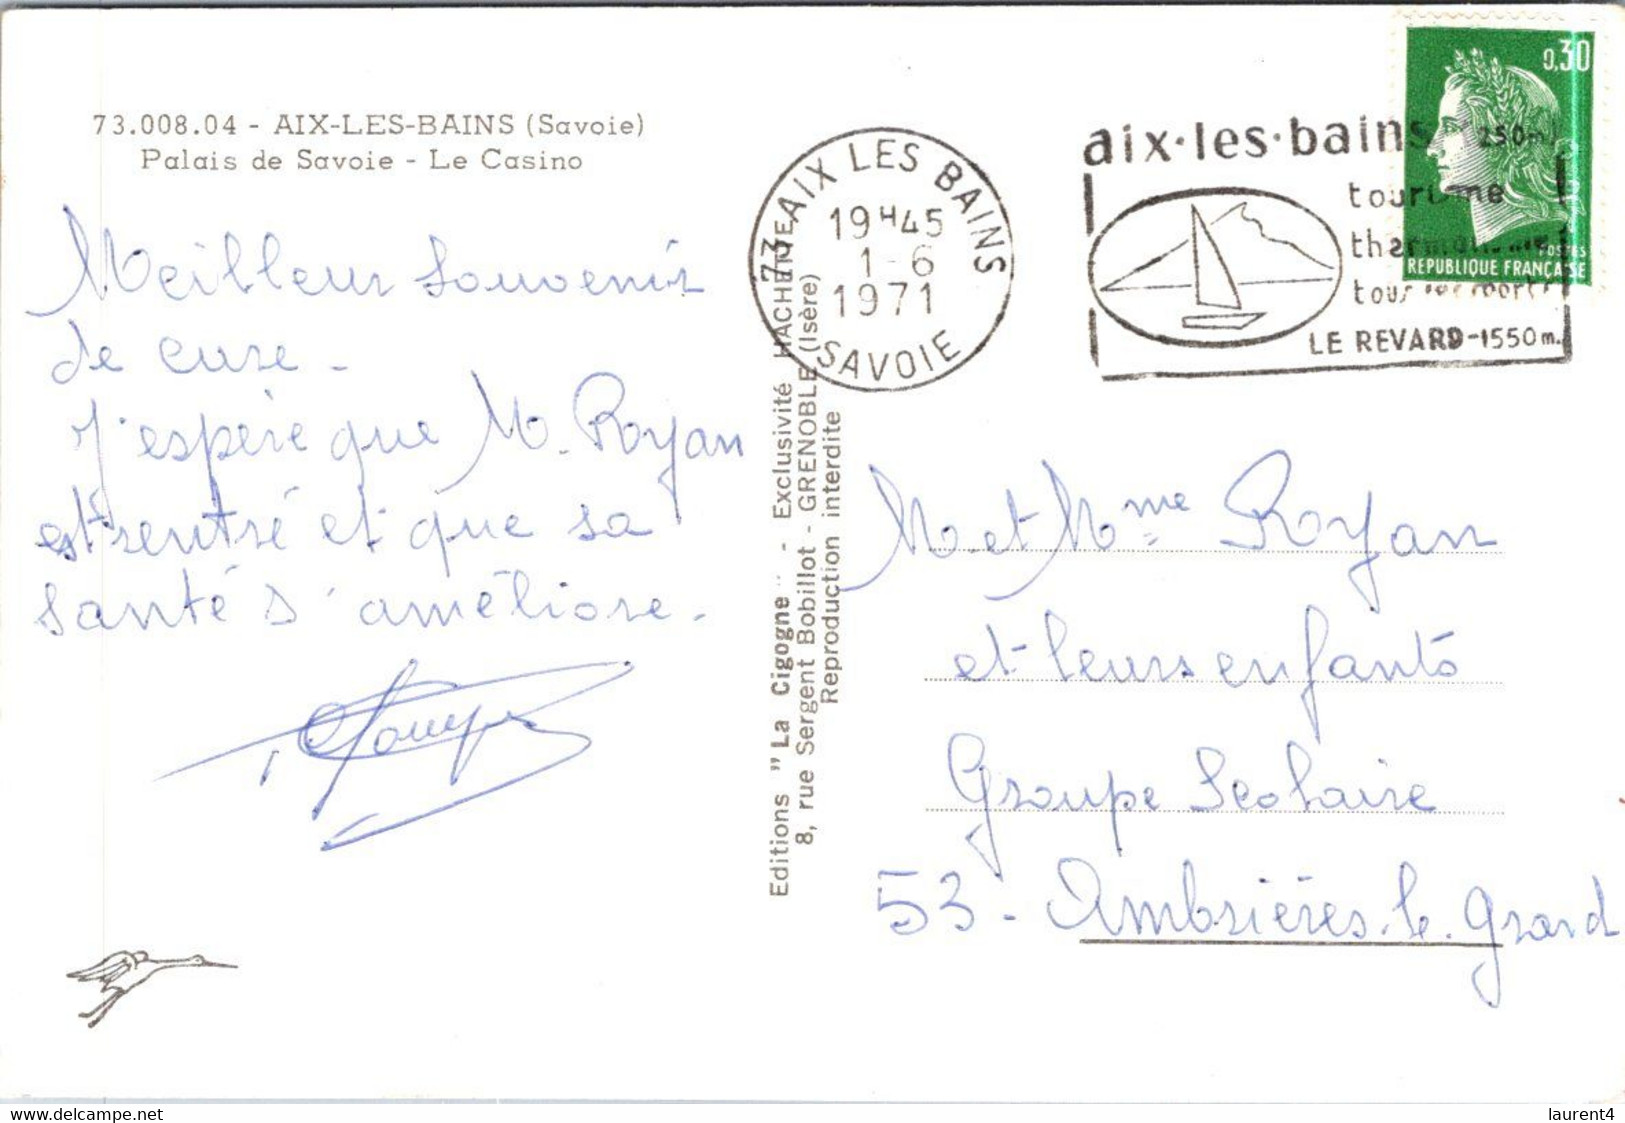 73.008.04 - AIX-LES-BAINS (Savoie)
Palais de Savoie - Le Casino
Meilleur souvenir
de cure -
J'espère que M. Royan
est rentré et que sa
santé s'améliore.
Editions "La Cigogne" - Exclusivité HACHETTE
8, rue Sergent Bobillot - GRENOBLE (Isère)
Reproduction interdite
73 AIX LES BAINS
19H45
1-6
1971
SAVOIE
aix·les·bains 250m
tourisme
thermalisme
tous les sports
LE REVARD-1550m.
0,30
POSTES
REPUBLIQUE FRANÇAISE
M. et Mme Royan
et leurs enfants
Groupe Scolaire
53 - Ambrières. le. Grand
delcampe.net
laurent4